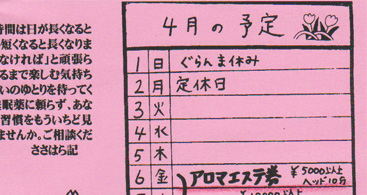 時間は日が長くなると
短くなると長くなりま
なければ」と頑張ら
るまで楽しむ気持ち
いのゆとりを持ってく
眠薬に頼らず、あな
習慣をもういちど見
ませんか。ご相談くだ
ささはら記
4月の予定
1 日 ぐらんま休み
2 月 定休日
3 火
4 水
5 木
6 金 アロマエステ券 ¥5000以上
ヘッド10分